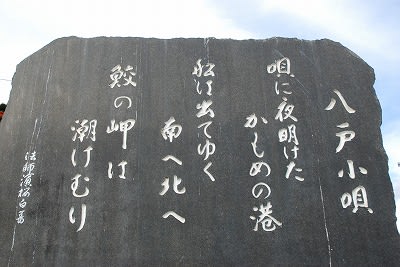 八戸小唄
唄に夜明けた
かもめの港
船は出てゆく
南へ北へ
鮫の岬は
潮けむり
法師濱桜白書